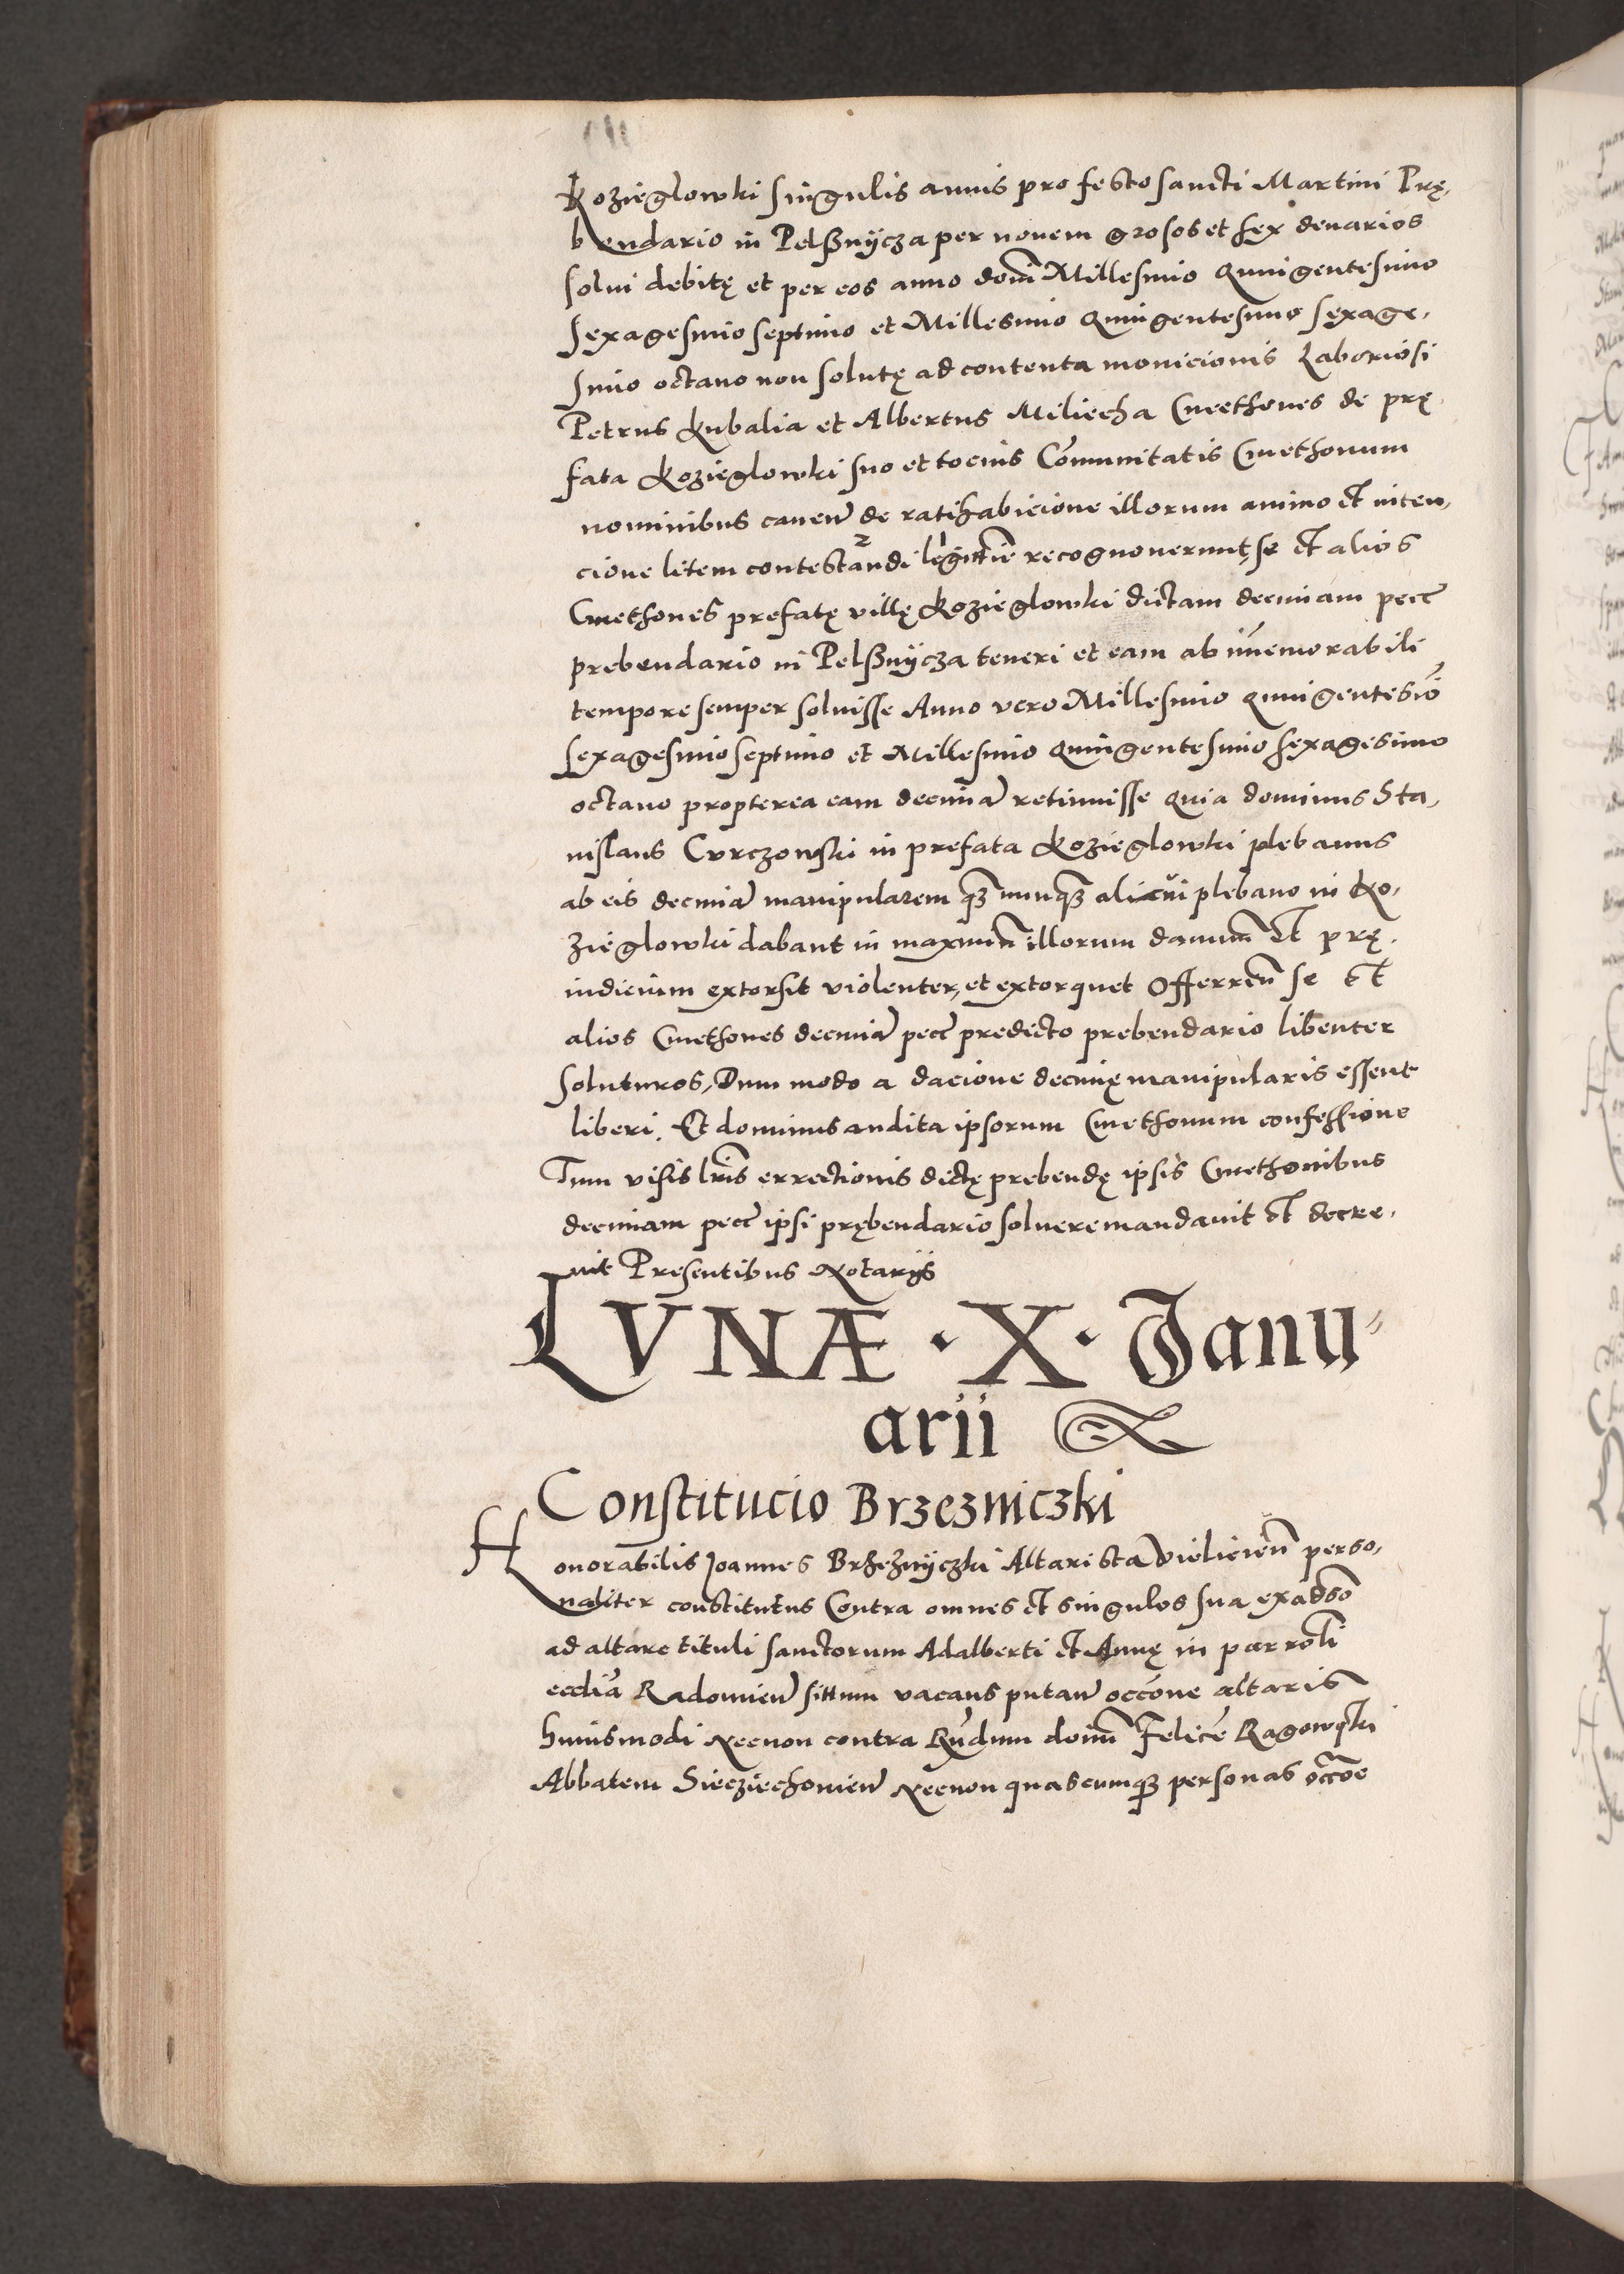 Kozieglowki singulis annis pro festo sancti Martini Prę,
bendario in Pelßnÿcza per nouem grosos et sex denarios
solui debitę et per eos anno domī Millesimo Quingentesimo
sexagesimo septimo et Millesimo Quingentesimo sexage,
simo octauo non solutę ad contenta monicionis Laboriosi
Petrus Kubalia et Albertus Miliecha Cmethones de prę
fata Kozieglowki suo et tocius Cōmunitatis Cmethonum
nominibus cauen de ratihabicione illorum animo et inten,
cione litem contestandi legittīe recognouerunt, se et alios
Cmethones prefatę villę Kozieglowki dictam decimam pecc
prebendario in Pelßnÿcza teneri et eam ab īmemorabili
tempore semper soluisse Anno vero Millesimo Quingentesiō
sexagesimo septimo et Millesimo Quingentesimo sexagesimo
octauo propterea eam decimā retinuisse Quia dominus Sta,
nislaus Curczowski in prefata Kozieglowki plebanus
ab eis decimā manipularem qȝ nunqȝ alicui plebano in Ko,
zieglowki dabant in maximū illorum damnū et prę,
iudicium extorsit violenter, et extorquet Offerreñ se et
alios Cmethones decimā pecc predicto prebendario libenter
soluturos, Dum modo a dacione decimę manipularis essent
liberi. Et dominus audita ipsorum Cmethonum confessione
Tum visis lr̄is errectionis dictę prebendę ipsis Cmethonibus
decimam pecc ipsi prębendario soluere mandauit et decre,
uit Presentibus Notarÿs
LVNÆ · X · Janu,,
arii
Constitucio Brzezniczki
Honorabilis Joannes Brzeznÿczki Altarista Vielicień perso,
naliter constitutus Contra omnes et singulos sua ex adsō
ad altare tituli sanctorum Adalberti et Annę in parrochli
ecclia Radomień sittum vacans putań occōne altaris
huiusmodi Necnon contra Rñdum domū Felicē Ragowski
Abbatem Siecziechouień Necnon quascumqȝ personas occōe